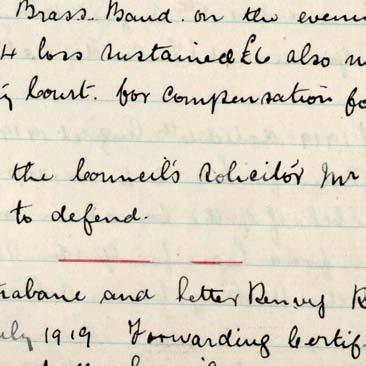 Brass Band. on the evenin
4 loss sustained £6 also
y Court. for compensation fo
the Council's Solicitor Mr
to defend.
rabane and letter Henry R
uly 1919 Forwarding Certif